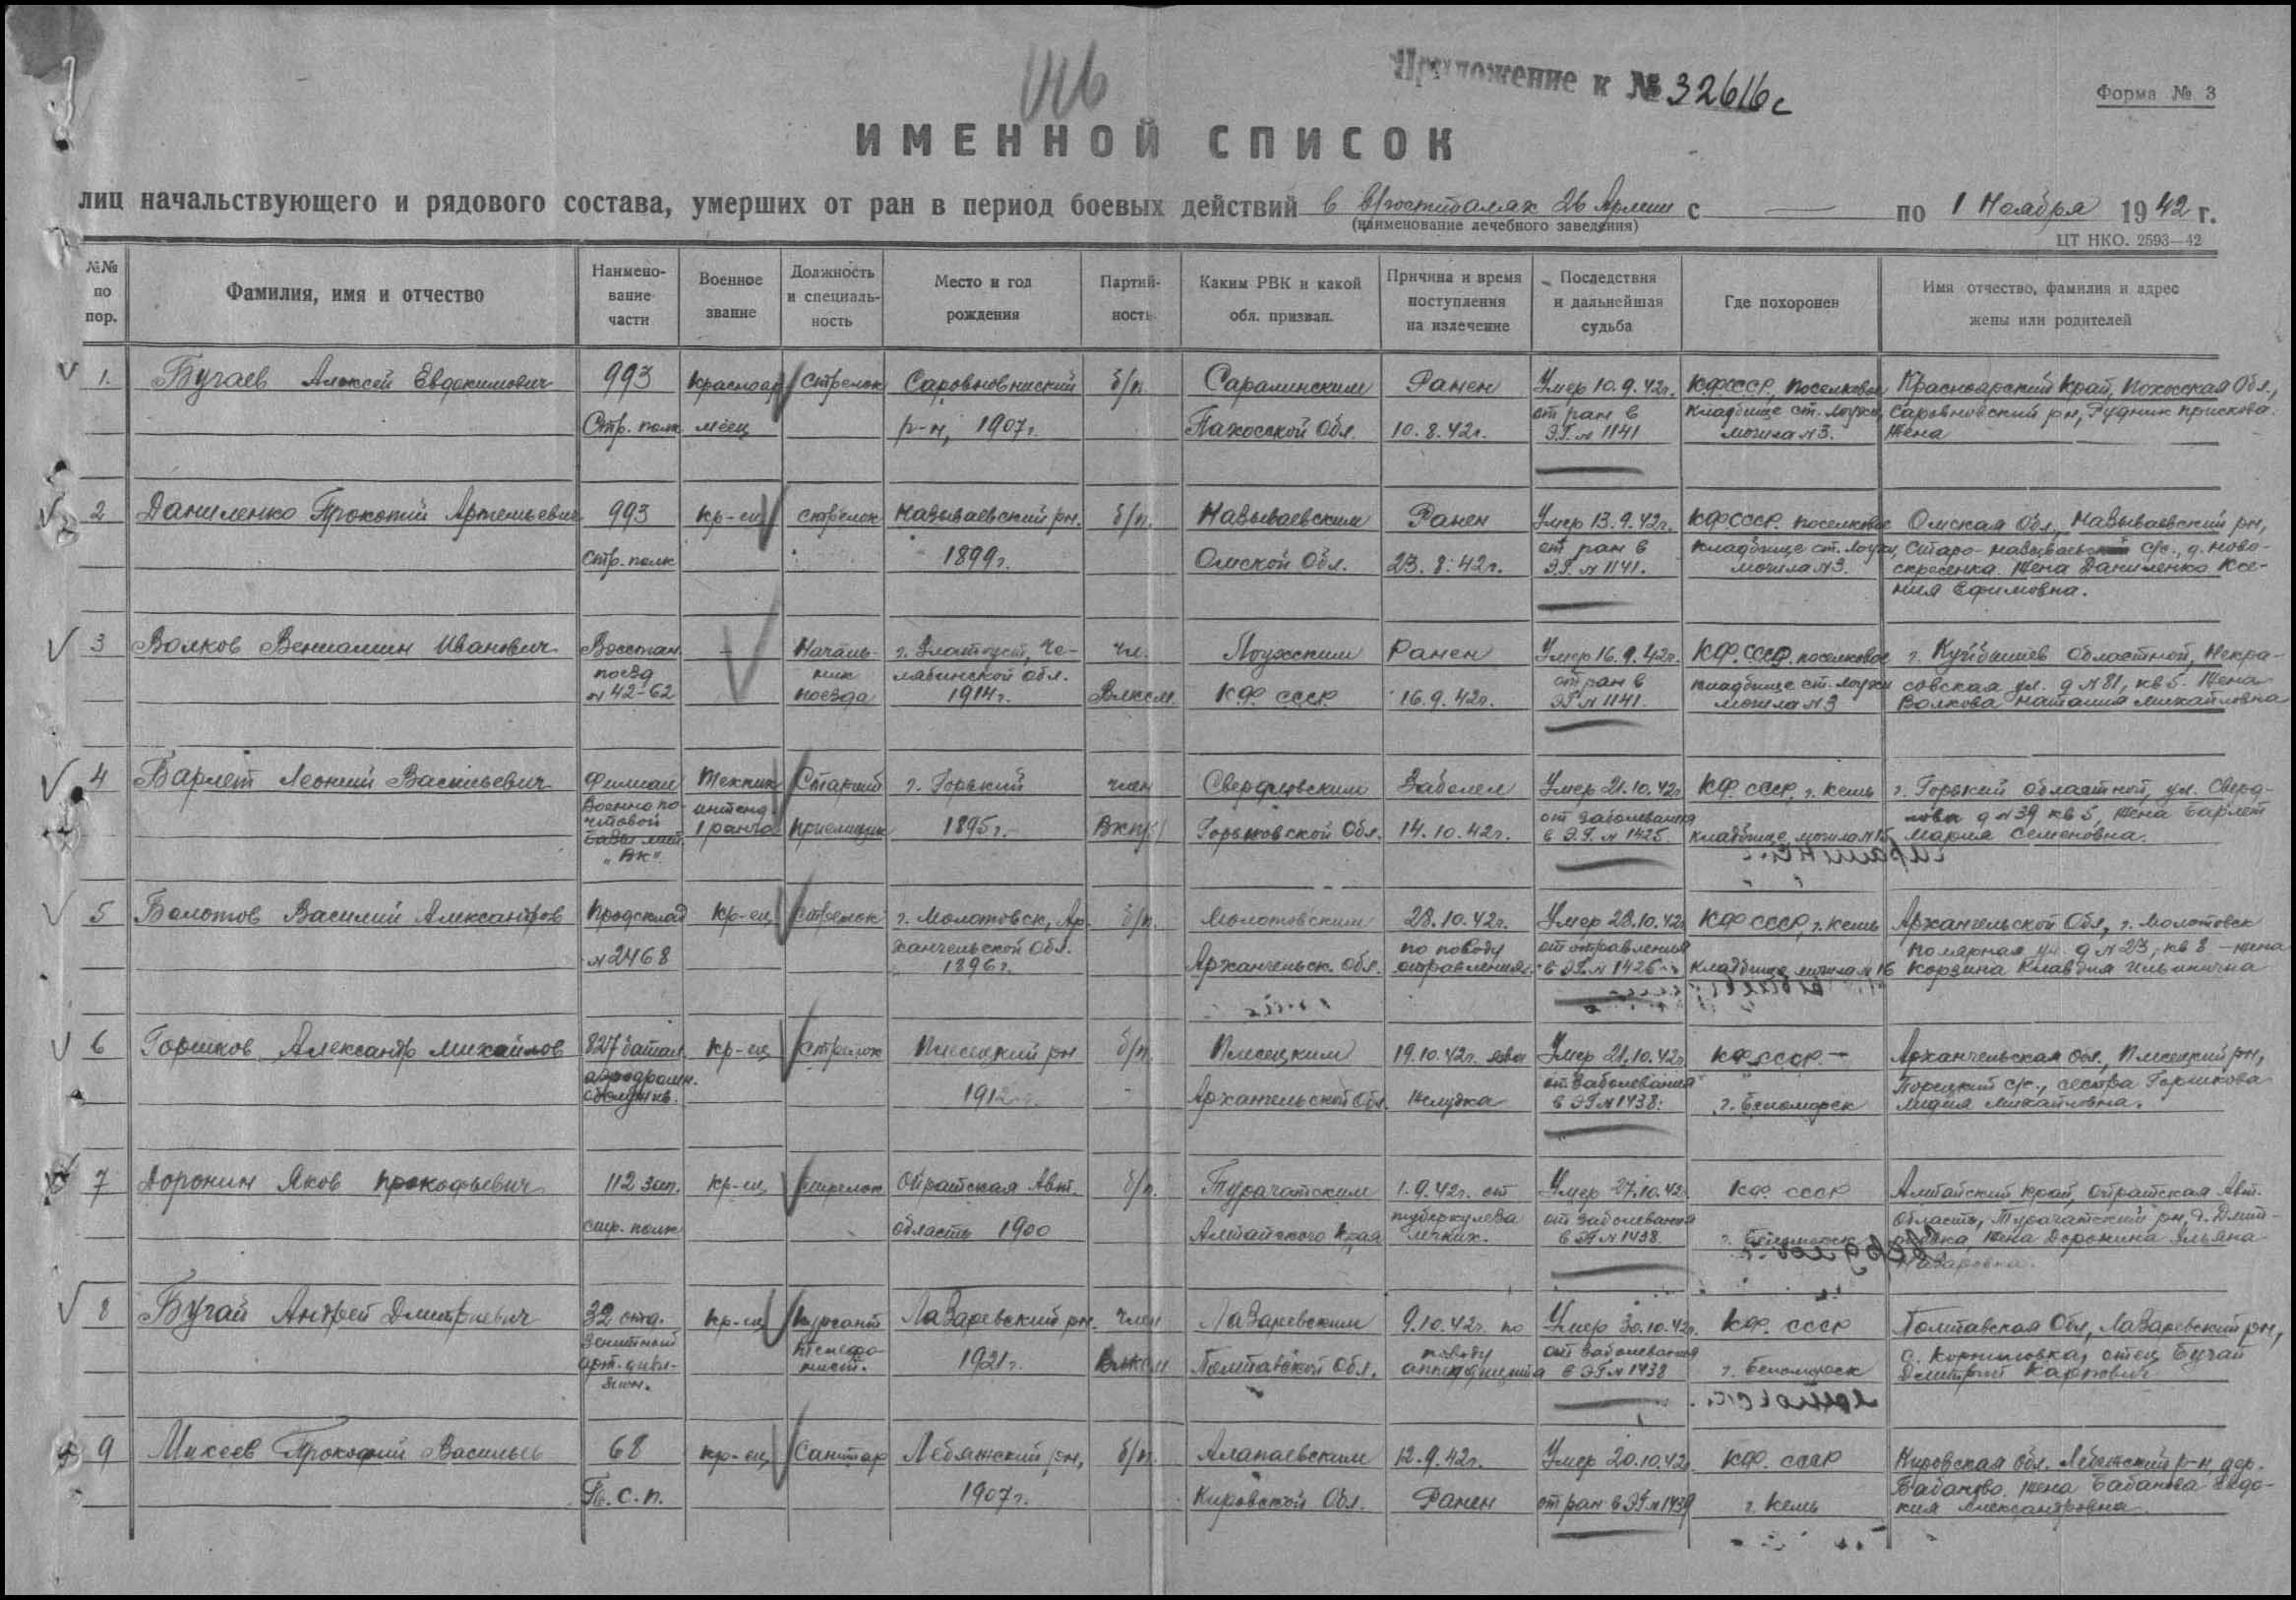 146
Приложение к № 32616с
Форма № 3
ИМЕННОЙ СПИСОК
лиц начальствующего и рядового состава, умерших от ран в период боевых действий в в/госпиталях 26 Армии с — по 1 Ноября 1942 г.
(наименование лечебного заведения)
ЦТ НКО. 2593—42
№№ по пор.
Фамилия, имя и отчество
Наимено-вание части
Военное звание
Должность и специаль-ность
Место и год рождения
Партий-ность
Каким РВК и какой обл. призван.
Причина и время поступления на излечение
Последствия и дальнейшая судьба
Где похоронен
Имя отчество, фамилия и адрес жены или родителей
1. Бугаев Алексей Евдокимович 993 Красноар стрелок б/п Саралинским Ранен Умер 10.9.42г. КФССР, поселковое Красноярский Край,
Стр. полк меец р-н, 1907г. Обл. 10.8.42г. от ран в ЭГ. N 1141 кладбище ст. Лоухи, могила N3. Жена
2 Даниленко Прокопий Артемьевич 993 кр-ец стрелок Называевский рн. б/п. Называевским Ранен Умер 13.9.42г. КФССР. поселковое Омская Обл., Называевский рн,
стр. полк 1899г. Омской Обл. 23.8.42г. от ран в ЭГ. N 1141. кладбище ст. Лоухи, могила N3. с/с., д. Ново-
скресенка. Жена Даниленко Ксе-
ния Ефимовна.
3 Волков Вениамин Иванович Восстан. поезд N 42-62 - Началь-ник поезда г. Златоуст, Че-лябинской обл. 1914г. чл. Влксм Лоухским КФ. СССР Ранен 16.9.42г. Умер 16.9.42г. от ран в ЭГ N 1141. КФ. СССР. поселковое кладбище ст. Лоухи могила N3
г. Куйбышев областной, Некра-
совская ул. д N 81, кв 5. Жена
Волкова Наталия Михайловна
4 Барлет Леонид Васильевич Филиал Военно по-чтовой базы лит. „АК“. Техник интенд. 1 ранга Старший приемщик г. Горький 1895г. член ВКП(б) Свердловским Горьковской Обл. Заболел 14.10.42г. Умер 21.10.42г от заболевания в Э.Г. N 1425. КФ. СССР, г. Кемь кладбище, могила N 15
г. Горький областной, ул. Сверд-
лова д N 39 кв 5, жена Барлет
Мария Семеновна.
5 Болотов Василий Александров Продсклад N 2468 кр-ец стрелок г. Молотовск, Ар-хангельской Обл. 1896г. б/п. Молотовским Архангельск. Обл. 28.10.42г. по поводу отравления. Умер 28.10.42г от отравления в ЭГ N 1425 КФ СССР, г. Кемь кладбище, могила N 16
Архангельской Обл, г. Молотовск
Полярная ул. д N 23, кв 8 - жена
Корзина Клавдия Ильинична
6 Горшков Александр Михайлов 827 батал. аэродромн. обслужив. кр-ец стрелок Плесецкий рн б/п. Плесецким Архангельской Обл. 19.10.42г. язва желудка Умер 21.10.42г от заболевания в ЭГ N 1438. КФ СССР - г. Беломорск
Архангельская обл., Плесецкий рн,
с/с., сестра Горшкова
Лидия Михайловна.
7 Доронин Яков Прокофьевич 112 зап. стр. полк кр-ец стрелок Ойратская Авт. область 1900 б/п. Турачатским Алтайского Края 1.9.42г. от туберкулеза легких. Умер 27.10.42 от заболевания в ЭГ N 1438. КФ. СССР г. Беломорск
Алтайский край, Ойратская Авт.
область, Турачатский рн,
жена Доронина
Назаровна.
8 Бугай Андрей Дмитриевич 32 отд. зенитный арт. диви-зион. кр-ец Курсант телефо-нист. Лазаревский рн. 1921г. член Влксм Лазаревским Полтавской Обл. 9.10.42г. по поводу аппендицита Умер 30.10.42г. от заболевания в ЭГ N 1438 КФ. СССР г. Беломорск
Полтавская Обл, Лазаревский рн,
с. Корниловка, отец Бугай
Дмитрий Карпович
9 Микеев Прокофий Васильев 68 кр-ец Санитар Лебяжский рн, 1907г. б/п. Алапаевским Кировской Обл. 12.9.42г. Ранен Умер 20.10.42г от ран в ЭГ N 1439 КФ. СССР г. Кемь
Кировская обл. р-н, дер.
жена Бабанова Евдо-
кия Александровна.